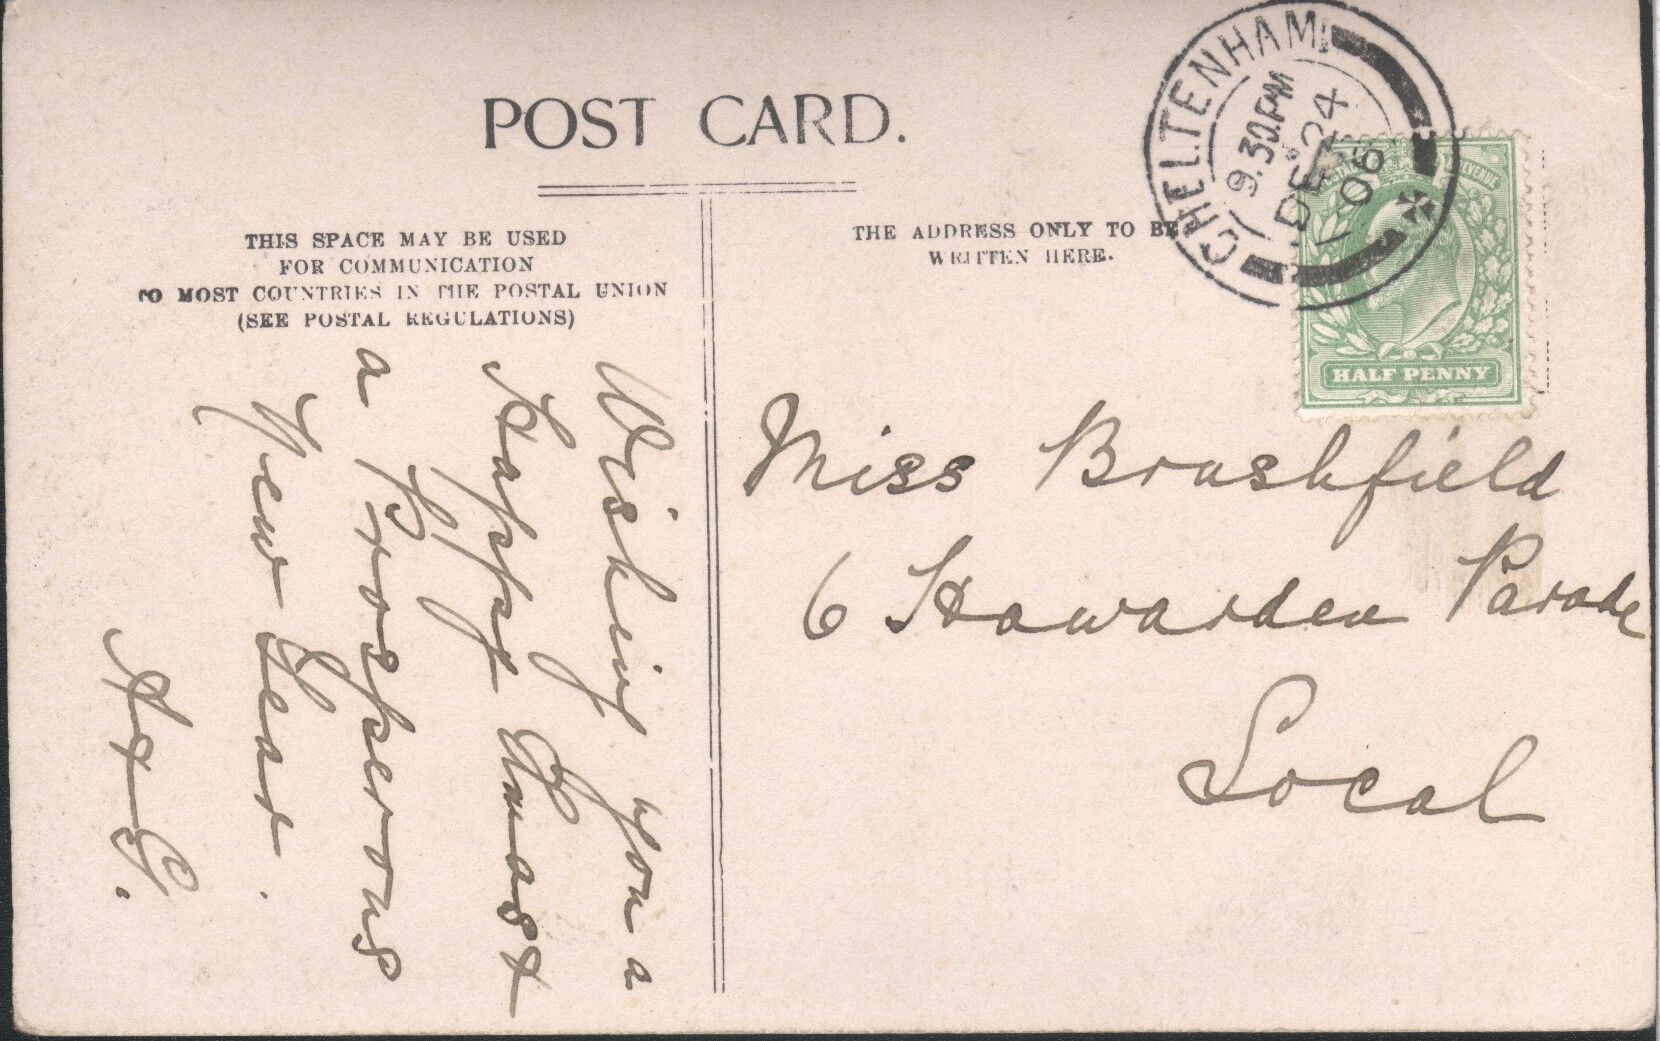 POST CARD.
THIS SPACE MAY BE USED
FOR COMMUNICATION
TO MOST COUNTRIES IN THE POSTAL UNION
(SEE POSTAL REGULATIONS)
Wishing you a
Happy Xmast &
a Prosperous
New Year.
THE ADDRESS ONLY TO BE
WRITTEN HERE.
CHELTENHAM
9.30.PM
DE 24
06
REVENUE
HALF PENNY
Miss Brushfield
6 Hawarden Parade
Local